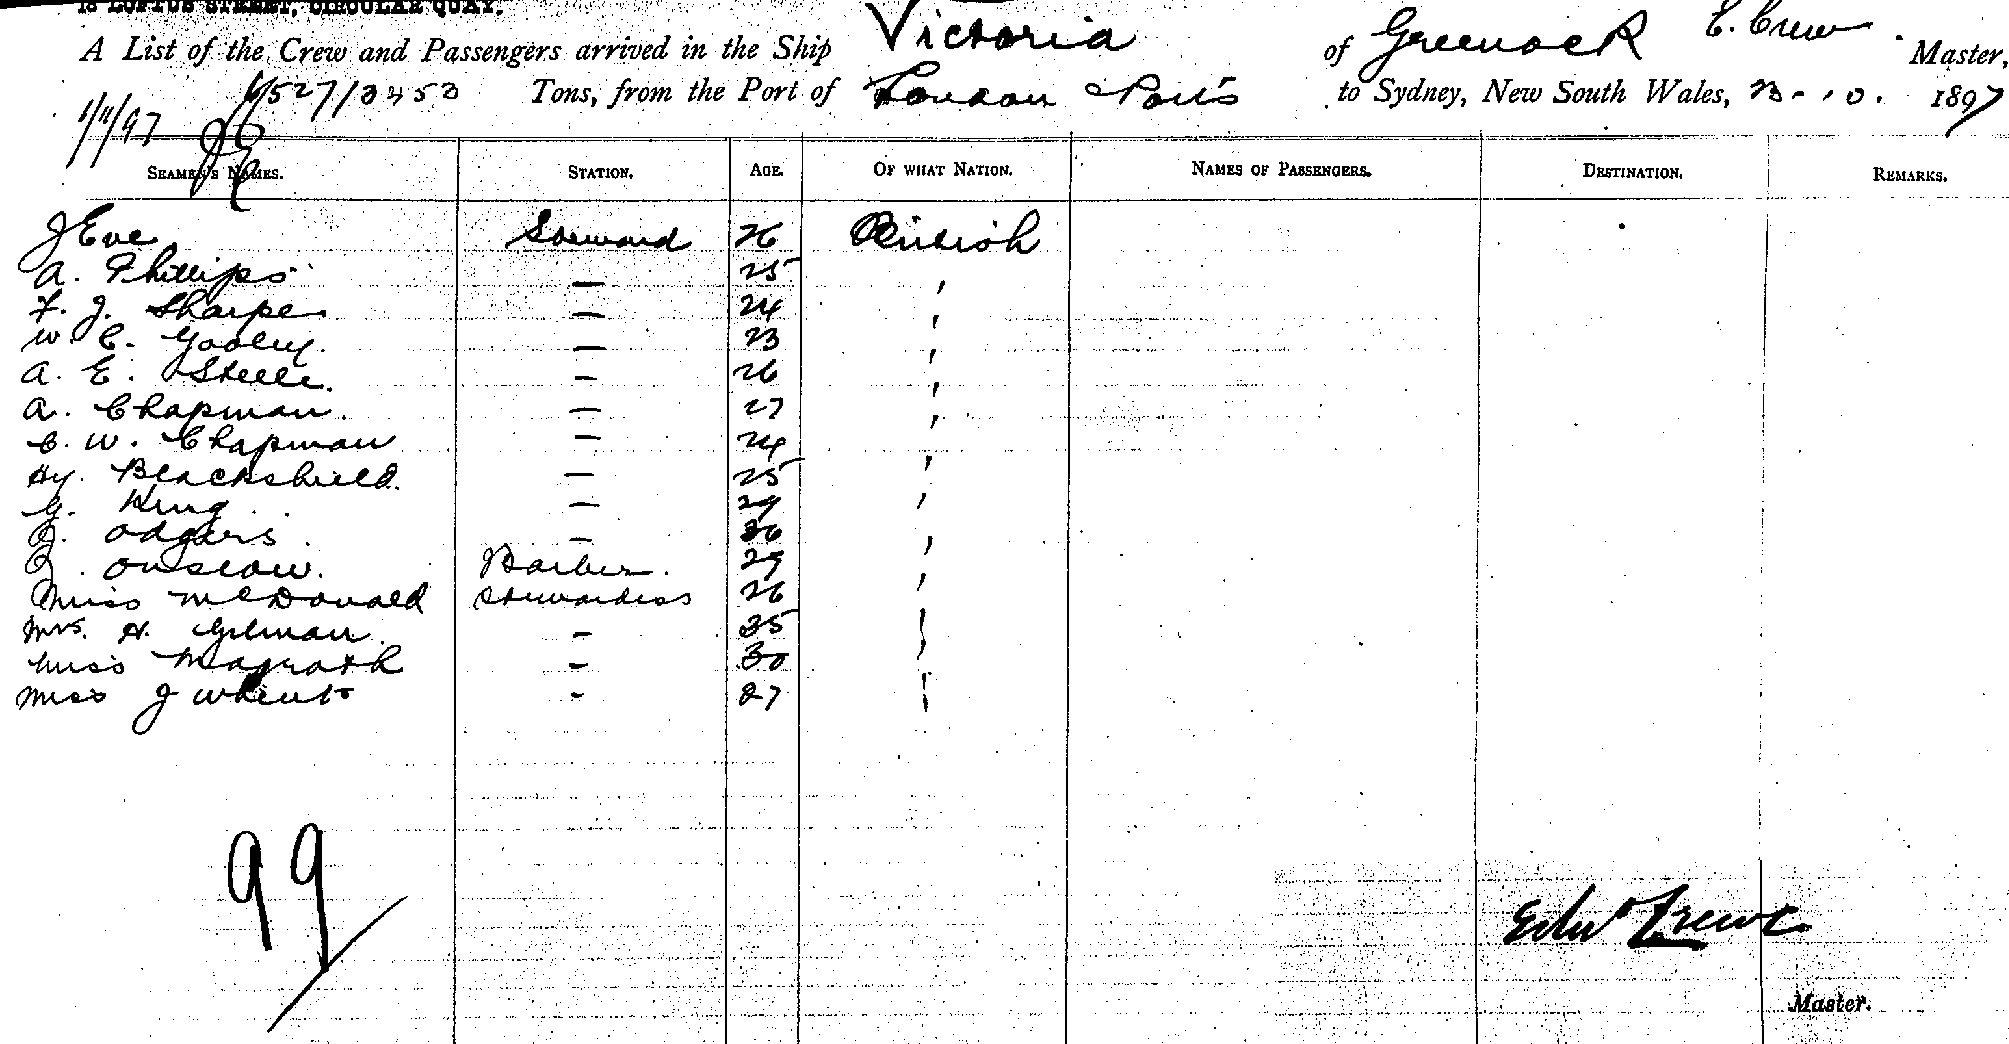 18 LOFTUS STREET, CIRCULAR QUAY.
A List of the Crew and Passengers arrived in the Ship Victoria of Greenock E. Crew Master,
6527/3453 Tons, from the Port of London Ports to Sydney, New South Wales, 1897
1/11/97
SEAMEN'S NAMES. STATION. AGE. OF WHAT NATION. NAMES OF PASSENGERS. DESTINATION. REMARKS.
J Eve Steward 26 British
A. Phillips — 25 '
F. J. Sharpe — 24 '
W. C. Gooley. — 23 '
A. E. Steele. — 26 '
A. Chapman. — 27 '
C. W. Chapman — 24
Hy. Blackshield. — 25 '
G. King — 29 '
Odgers. — 30 '
Onslow. Barber. 29 '
Miss McDonald Stewardess 26 '
Mrs. H. Gilman. - 35
Miss Magrath - 30
Miss J Whent - 27
99
Edw Crewe
Master.